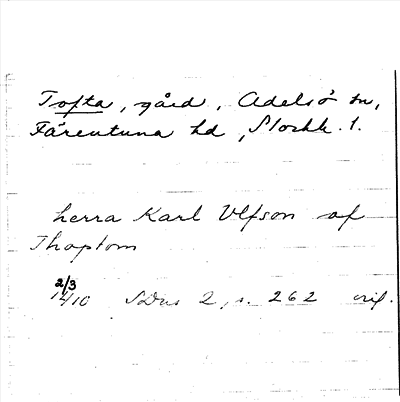 Tofta, gård, Adelsö sn,
Färentuna hd, Stockh. l.
herra Karl Vlfson af
Thoptom
2/3
1410 SDns 2, s. 262 orig.